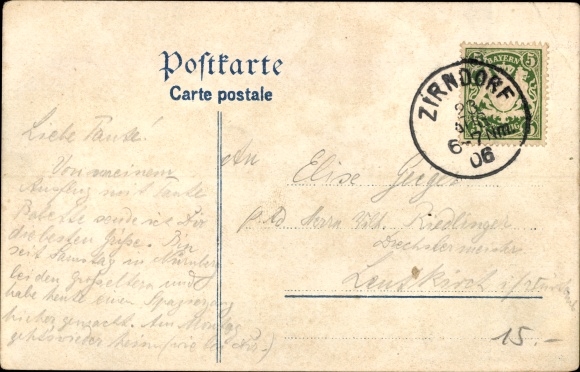 Postkarte
Carte postale
BAYERN
5
5
ZIRNDORF
6-7 Nm.
06
Liebe Tante!
Von meinem
Ausflug mit Tante
Babette sende ich Dir
die besten Grüße. Bin
seit Samstag in Nürnberg
bei den Großeltern und
habe heute einen Spaziergang
hierher gemacht. Am Montag
gehts wieder heim
An
Elise Geiger
Herrn Riedlinger
Drechslermeister
Lenzkirch
15.-